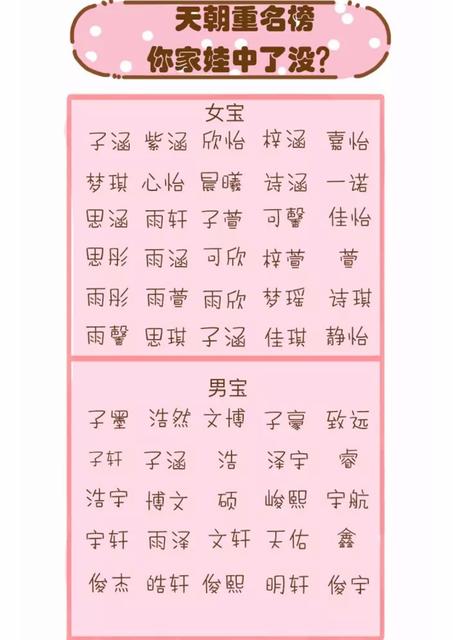 天朝重名榜
你家娃中了没?
女宝
子涵 紫涵 欣怡 梓涵 嘉怡
梦琪 心怡 晨曦 诗涵 一诺
思涵 雨轩 子萱 可馨 佳怡
思彤 雨涵 可欣 梓萱 萱
雨彤 雨萱 雨欣 梦瑶 诗琪
雨馨 思琪 子涵 佳琪 静怡
男宝
子墨 浩然 文博 子豪 致远
子轩 子涵 浩 泽宇 睿
浩宇 博文 硕 峻熙 宇航
宇轩 雨泽 文轩 天佑 鑫
俊杰 皓轩 俊熙 明轩 俊宇